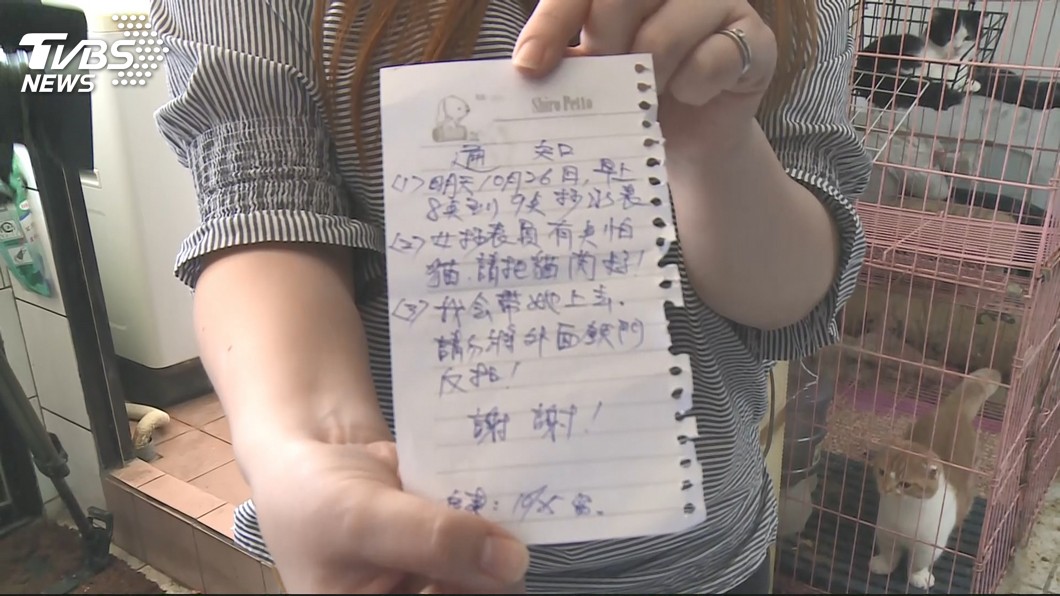 TVBS
NEWS
Shiro Petto
通 知
(1) 明天10月26日,早上
8点到9点抄水表
(2) 女抄表員有点怕
貓.請把貓関好!
(3) 我会帶她上去.
請勿將外面鉄門
反扣!
謝 謝!